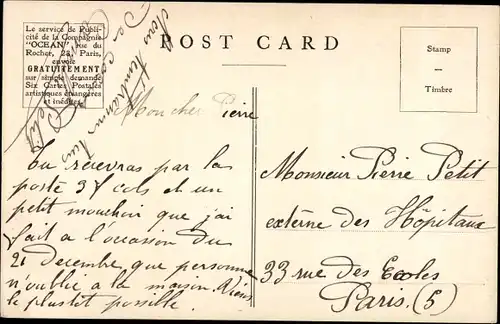 Le service de Publi-
cité de la Compagnie
"OCEAN" rue du
Rocher, 23, Paris,
envoie
GRATUITEMENT
sur simple demande
Six Cartes Postales
artistiques étrangères
et inédites.
POST CARD
Stamp
—
Timbre
Mon cher Pierre
Tu recevras par la
poste 37 cols et un
petit mouchoir que j'ai
fait a l'occasion du
21 decembre, que personne
n'oublie a la maison. Viens
le plustot possible.
Nous t'embrassons tous
Petit
Monsieur Pierre Petit
externe des Hôpitaux
33 rue des Ecoles
Paris. (5)